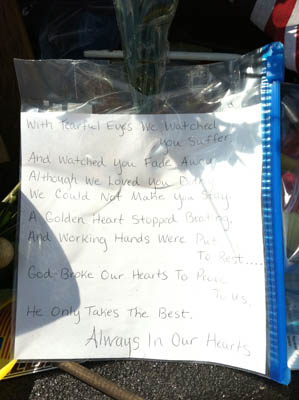 With Tearful Eyes We Watched
You Suffer
And Watched You Fade Away
Although We Loved You
We Could Not Make You Stay.
A Golden Heart Stopped Beating,
And Working Hands Were Put
To Rest....
God Broke Our Hearts To Prove
To Us,
He Only Takes The Best.
Always In Our Hearts